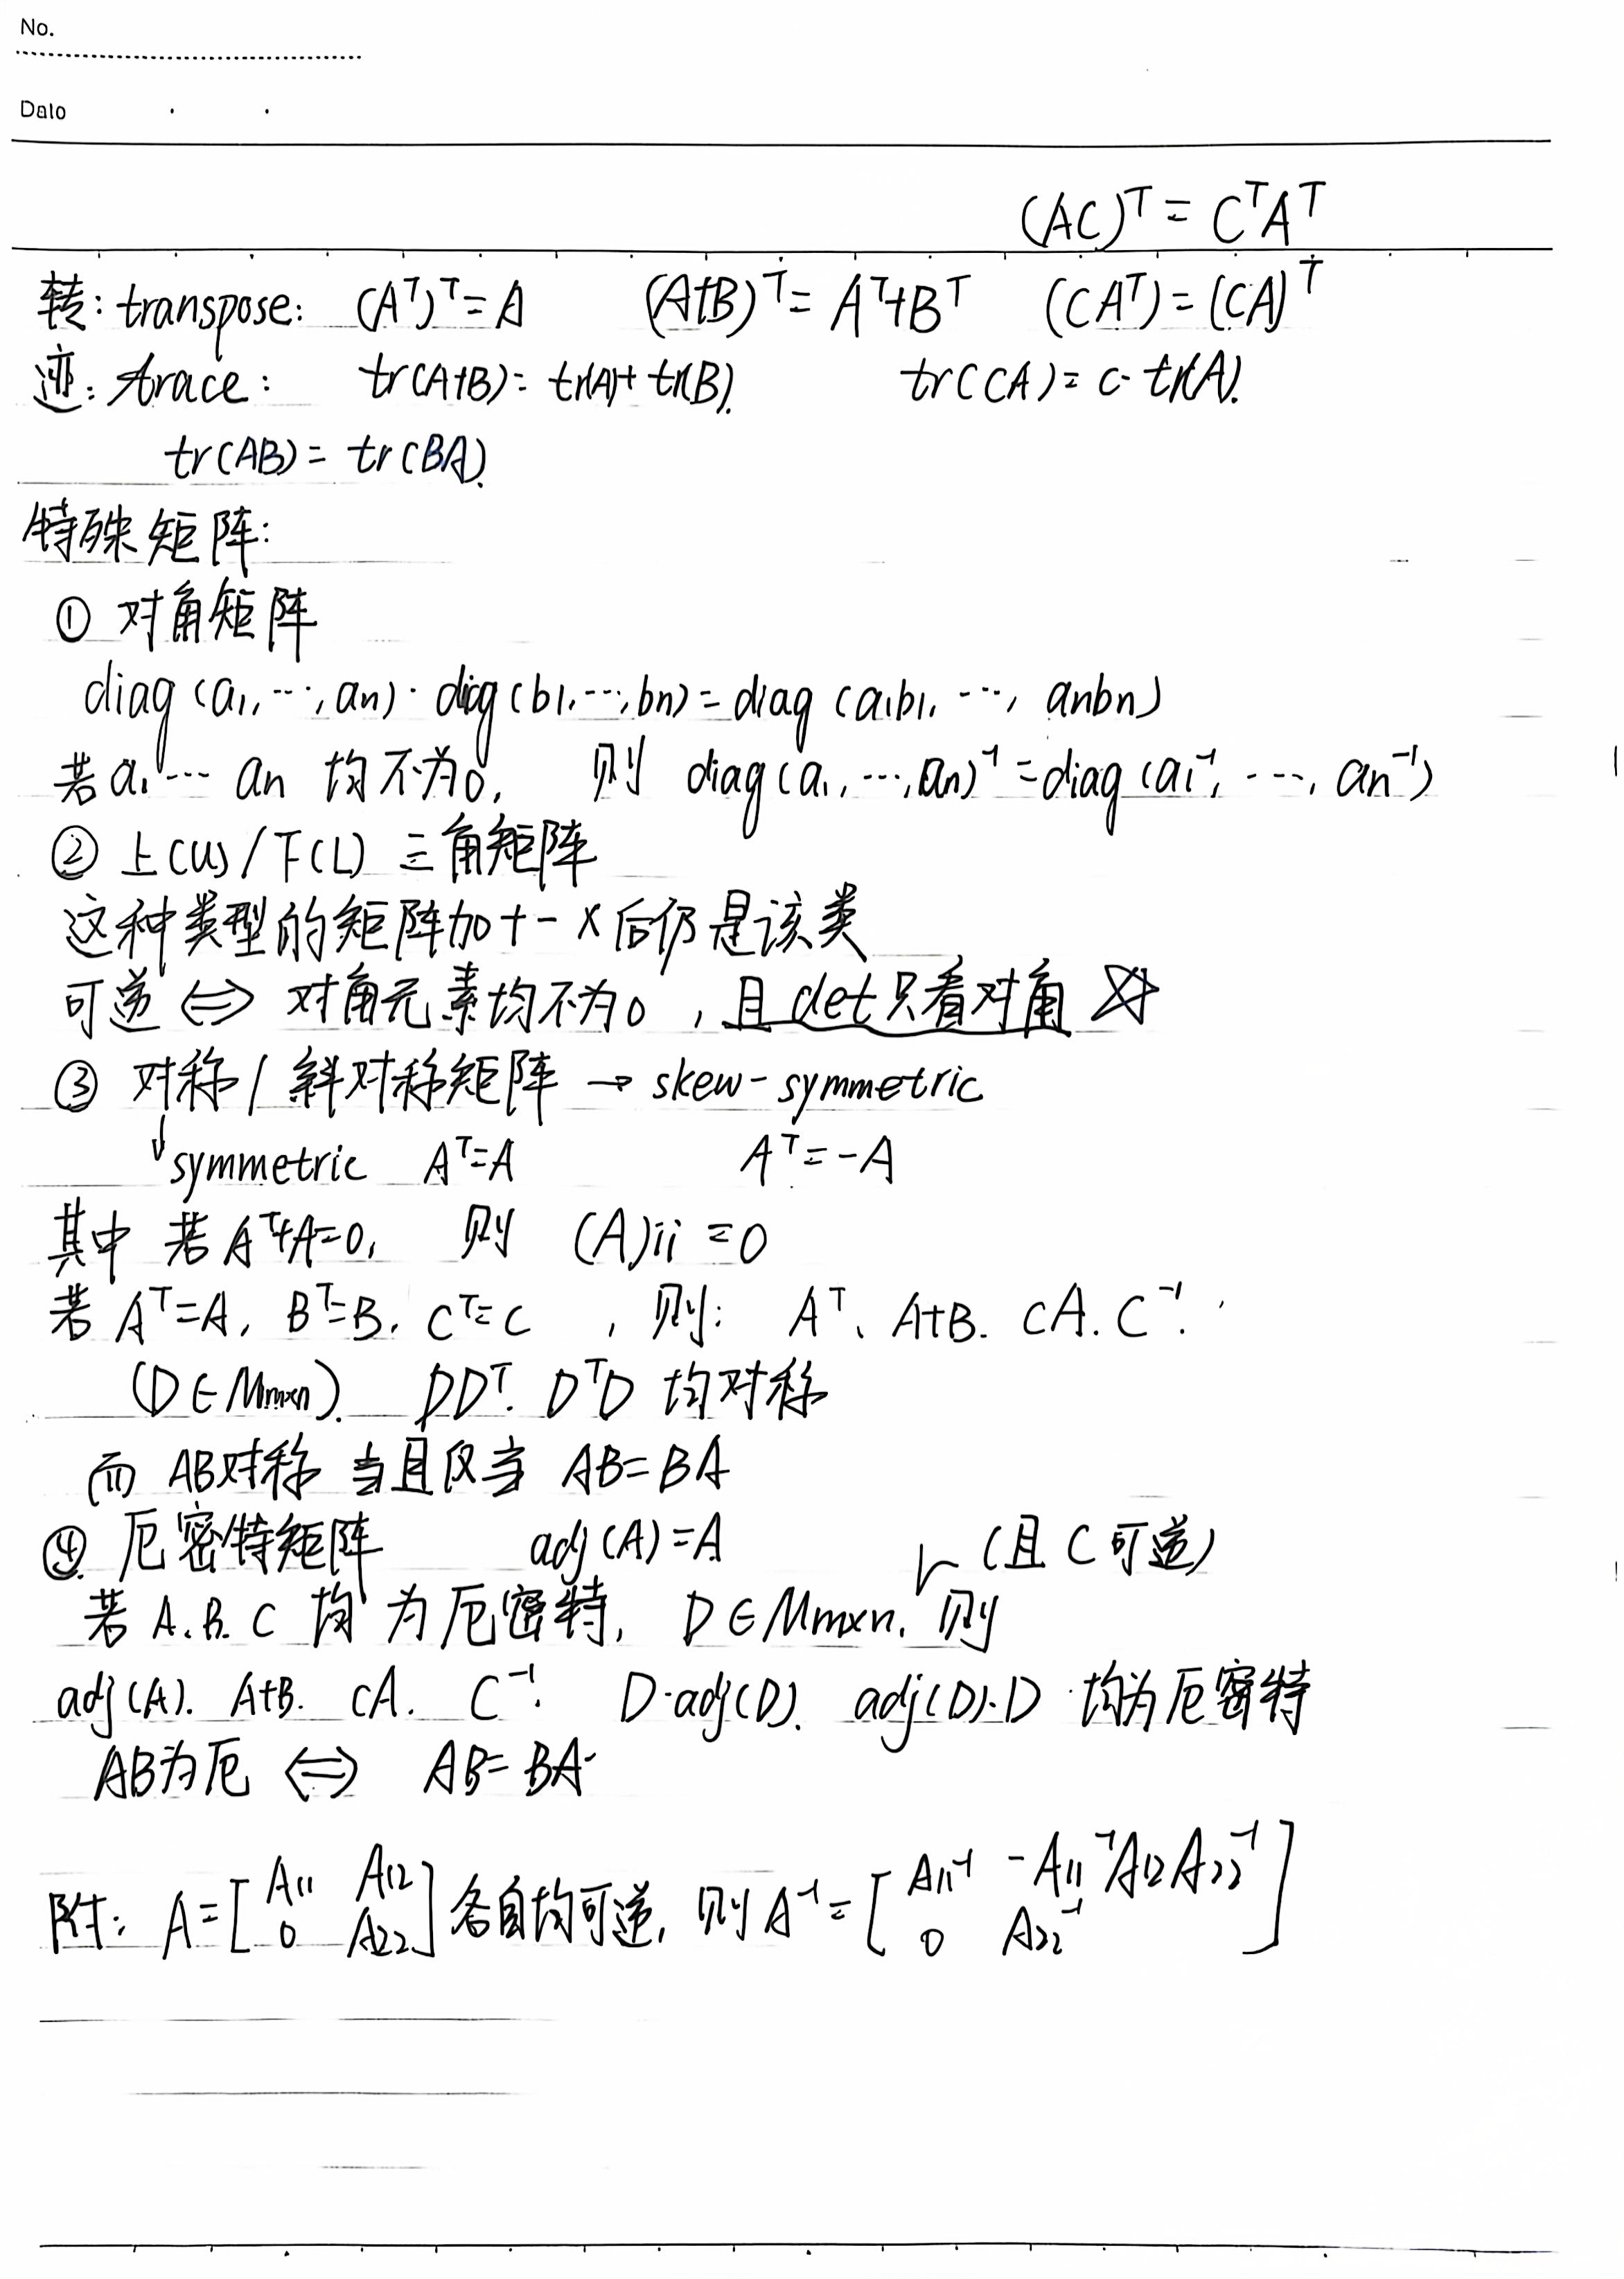 No.
Date
(AC)ᵀ = CᵀAᵀ
转: transpose: (Aᵀ)ᵀ = A (A+B)ᵀ = Aᵀ+Bᵀ (CAᵀ) = (CA)ᵀ
迹: trace: tr(A+B) = tr(A)+ tr(B). tr(CA) = c· tr(A).
tr(AB) = tr(BA).
特殊矩阵:
① 对角矩阵
diag (a₁, ···, an) · diag (b1, ···, bn) = diag (a₁b1, ···, anbn)
若 a₁ ··· an 均不为0, 则 diag (a₁, ···, an)⁻¹ = diag (a₁⁻¹, ···, an⁻¹)
② 上(U) / 下(L) 三角矩阵
这种类型的矩阵加 + - × 后仍是该类
可逆 ⟺ 对角元素均不为0 , 且 det 只看对角
③ 对称 / 斜对称矩阵 → skew-symmetric
↓ symmetric Aᵀ=A Aᵀ = -A
其中 若 Aᵀ+A=0, 则 (A)ii = 0
若 Aᵀ=A, Bᵀ=B, Cᵀ=C , 则: Aᵀ、A+B. cA. C⁻¹.
(D ∈ Mm×n). DDᵀ. DᵀD 均对称
而 AB对称 当且仅当 AB = BA
④ 厄密特矩阵 adj (A) = A (且 C 可逆)
若 A. B. C 均为厄密特, D ∈ Mm×n. 则
adj (A). A+B. cA. C⁻¹. D·adj(D). adj(D)·D 均为厄密特
AB为厄 ⟺ AB = BA
附: A = [A₁₁ A₁₂; 0 A₂₂] 各自均可逆, 则 A⁻¹ = [A₁₁⁻¹ -A₁₁⁻¹A₁₂A₂₂⁻¹; 0 A₂₂⁻¹]